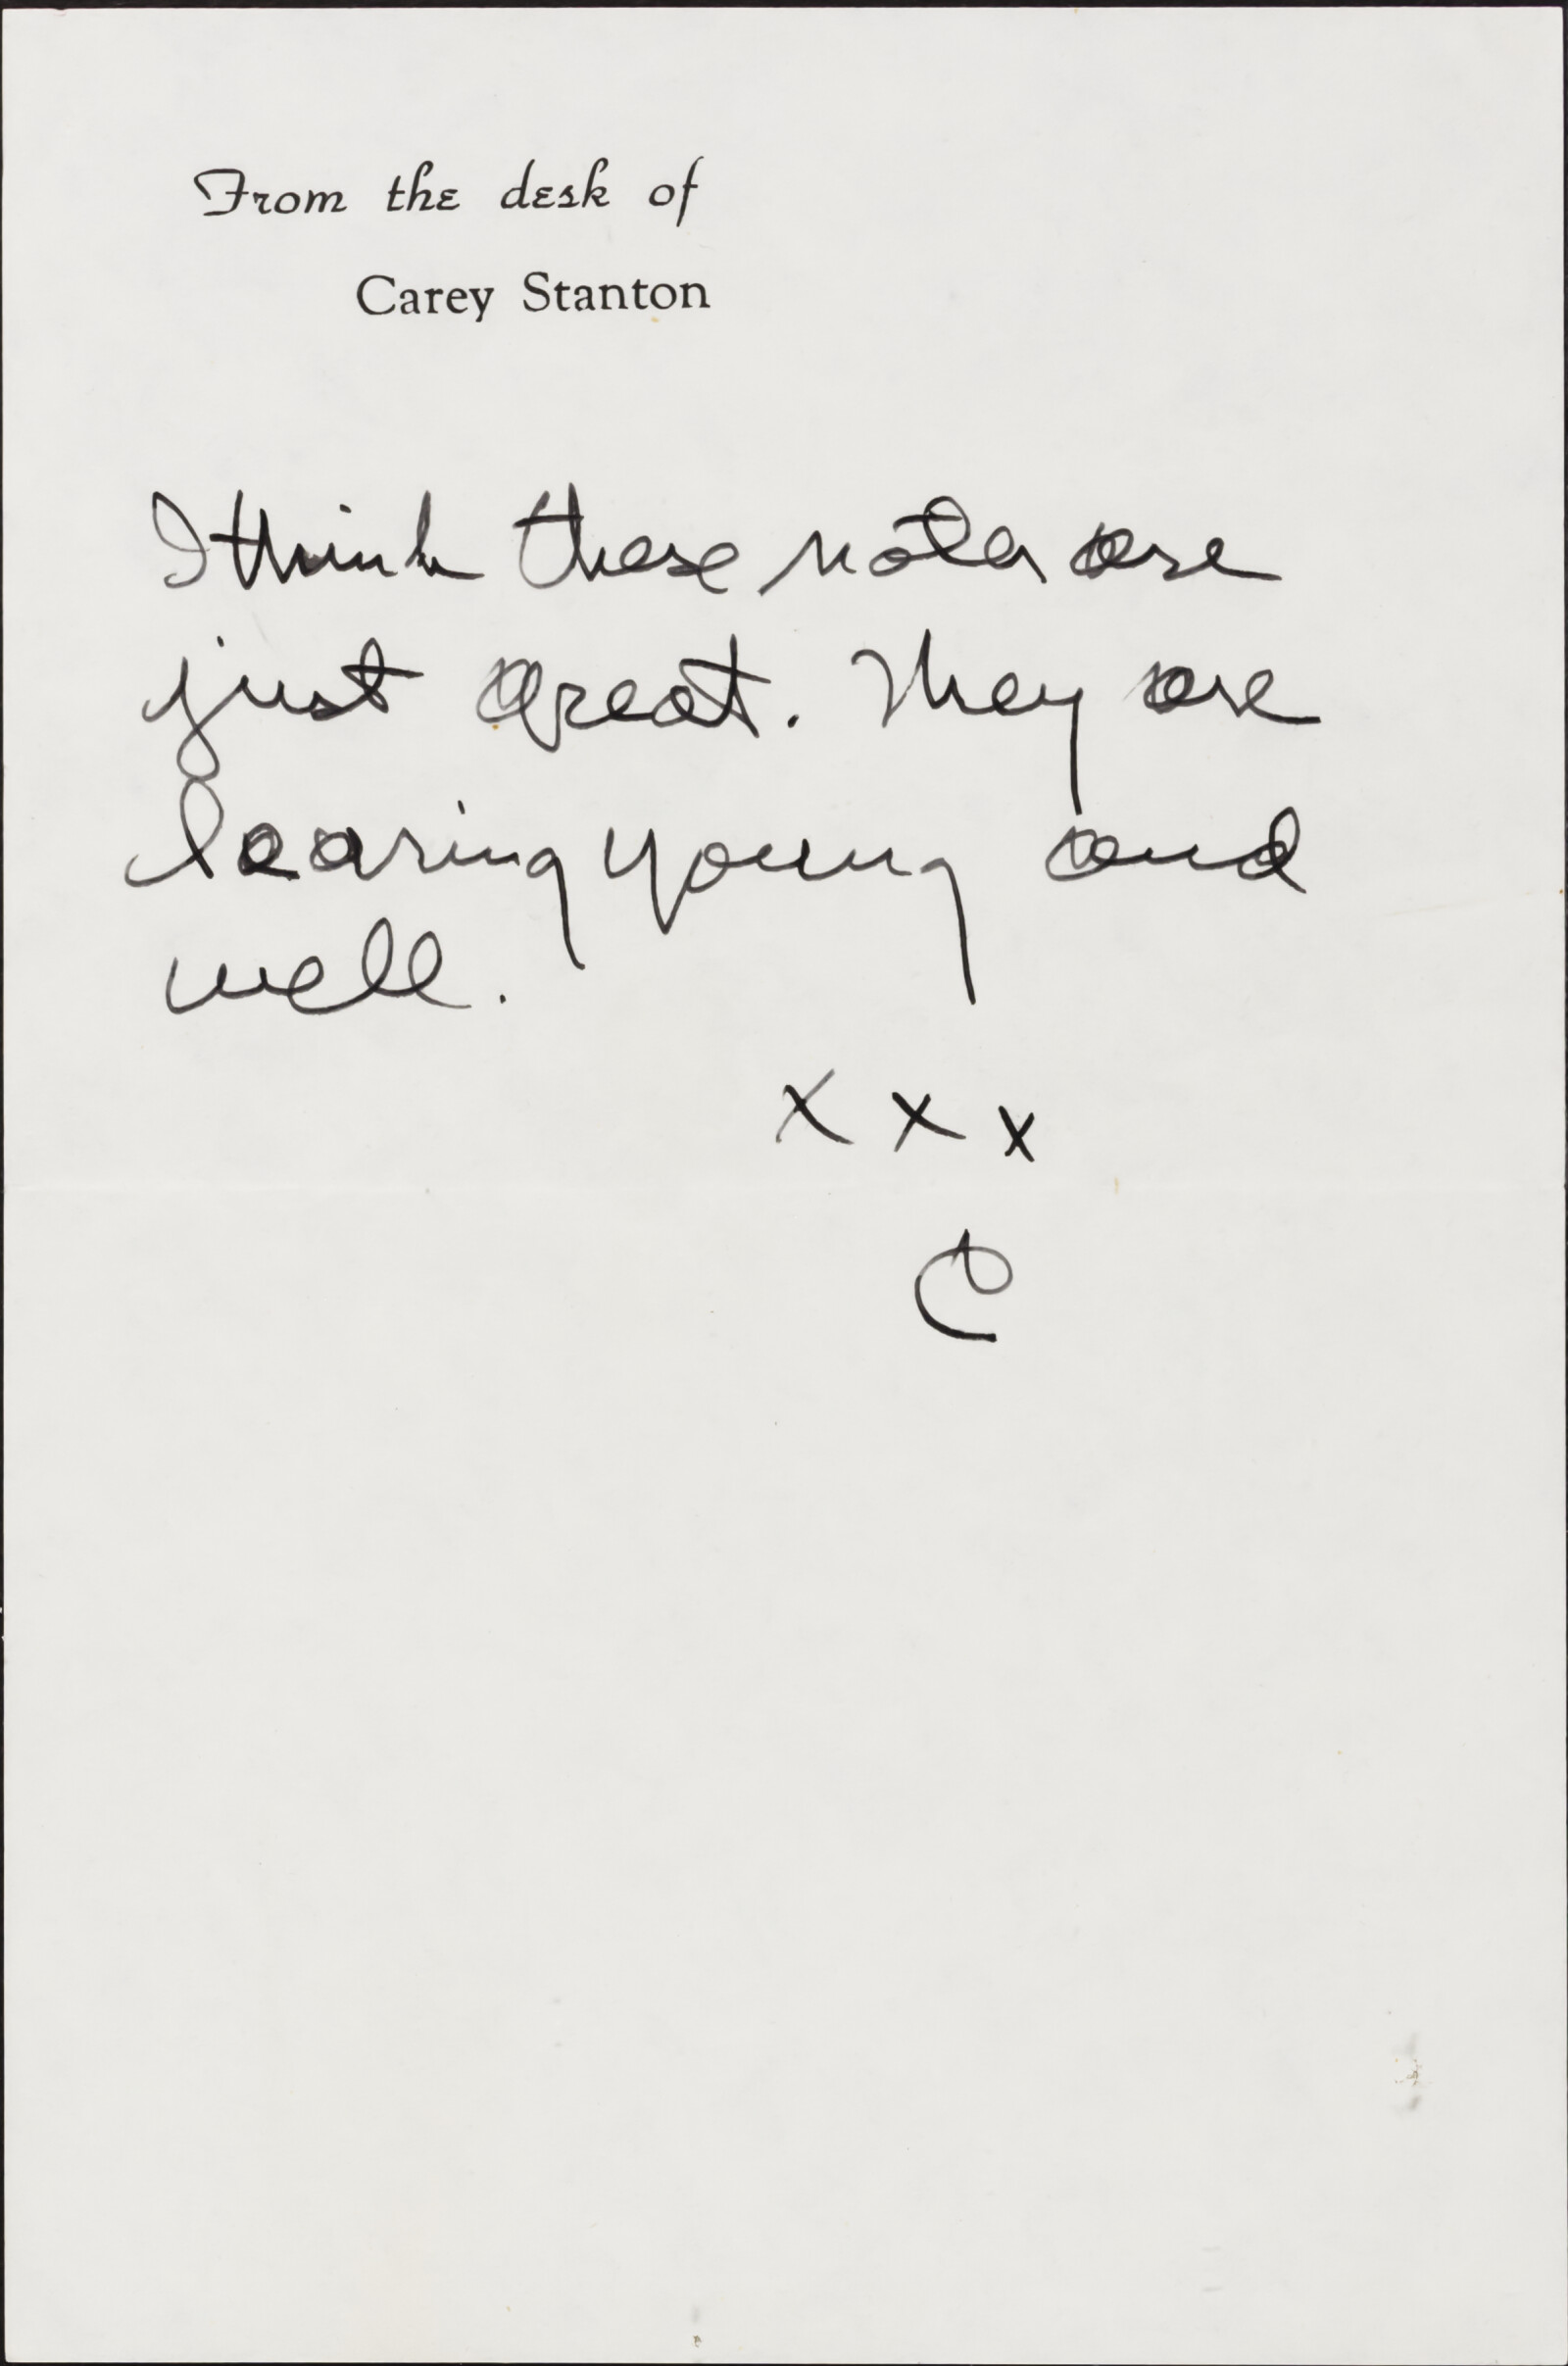 From the desk of
Carey Stanton
I think these notes are
just great. They are
learing young and
well.
x x x
C